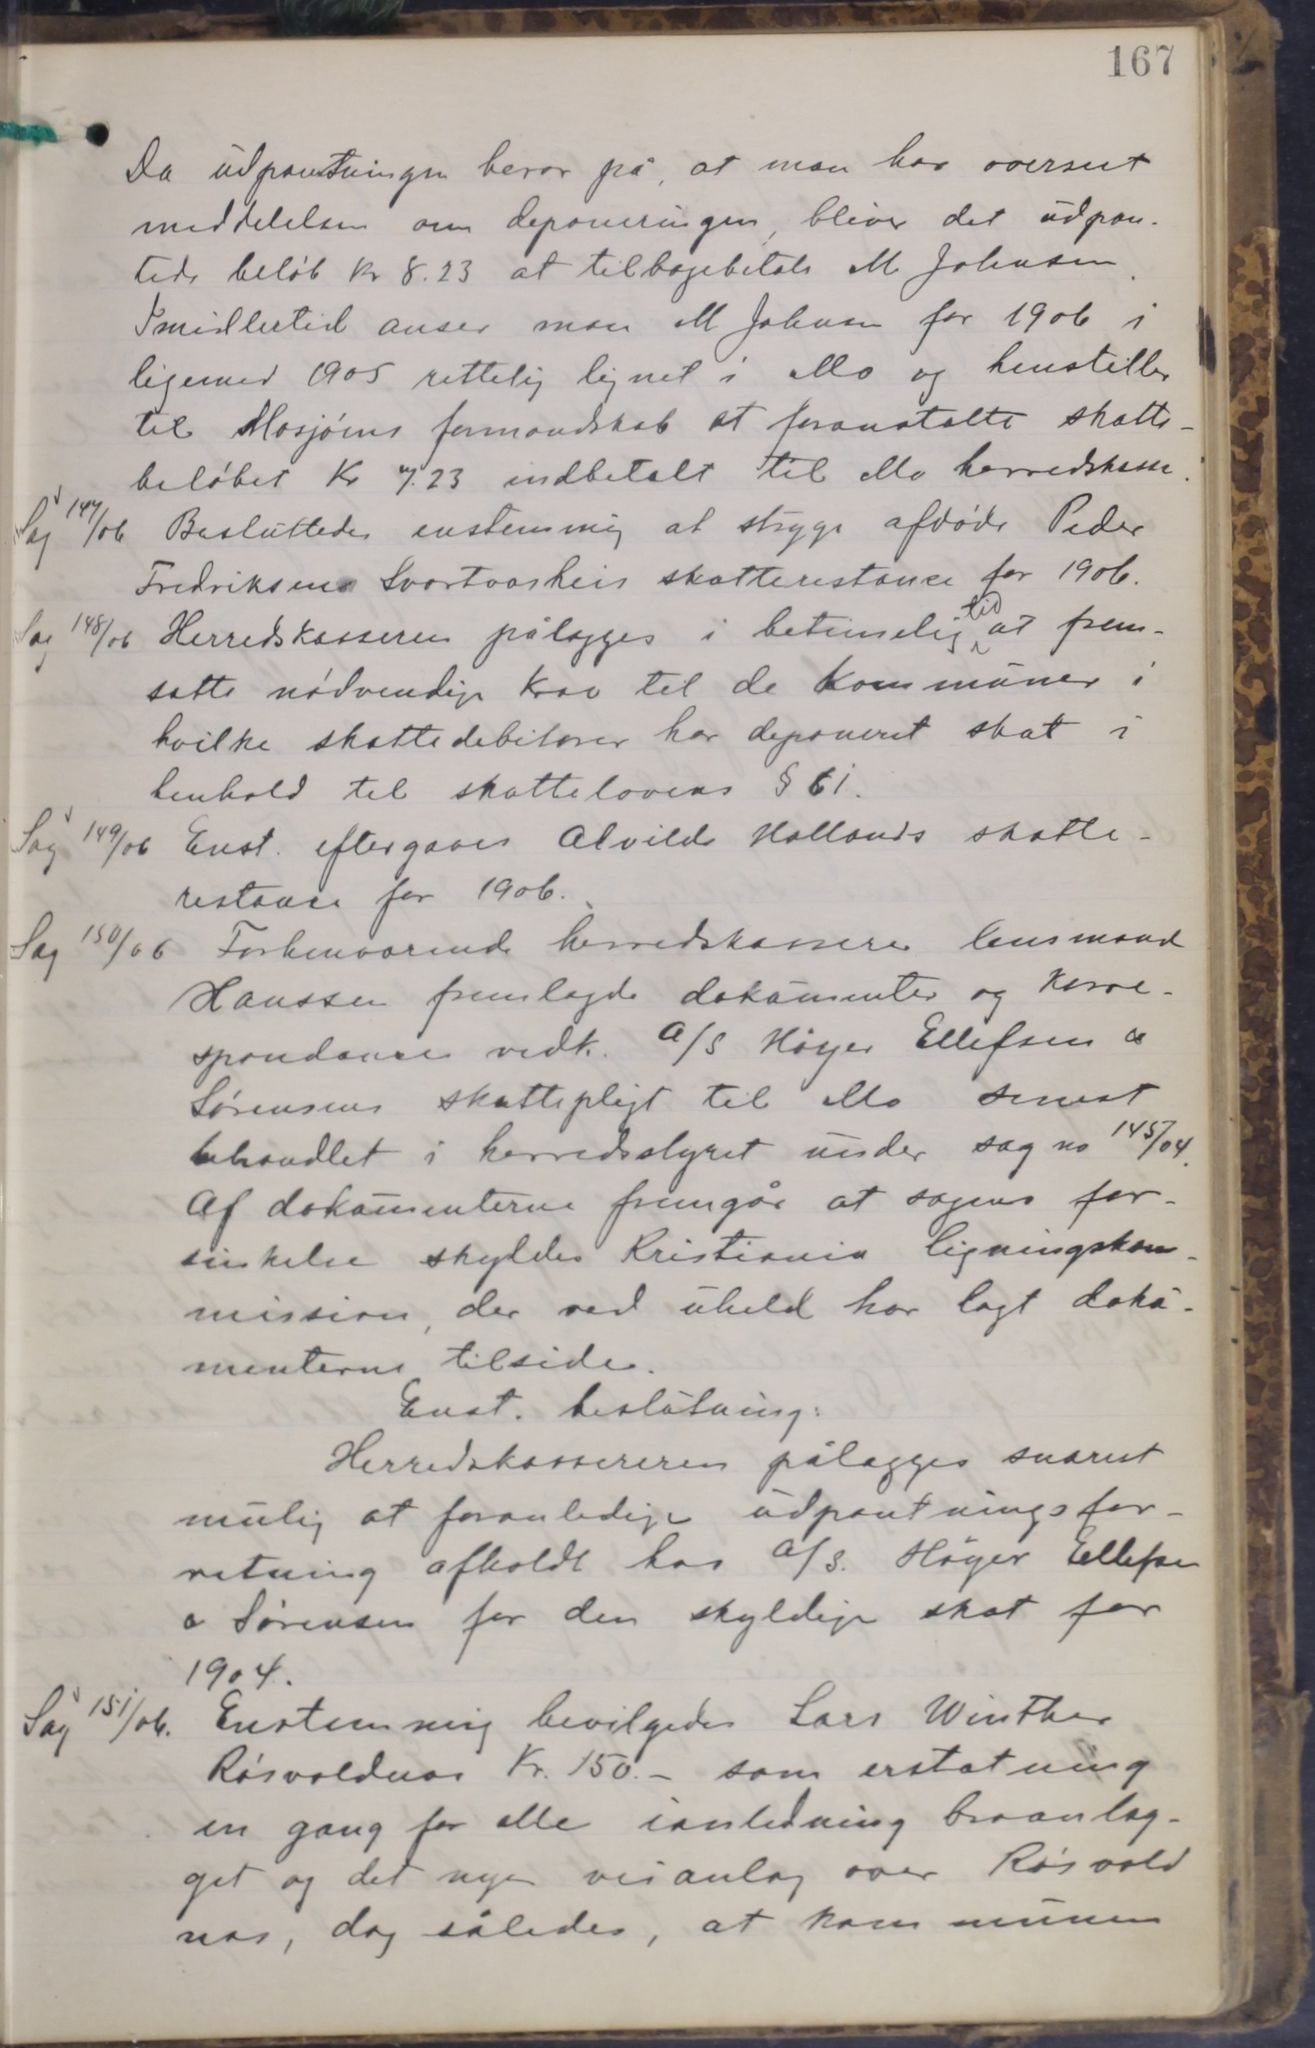 167
Da udpantningen beror på, at man har overset
meddelelsen om deponeringen, bliver det udpan-
tede beløb kr 8.23 at tilbagebetale M Johnsen.
Imidlertid anser man M Johnsen for 1906 i
ligemed 1905 rettelig lignet i Mo og henstiller
til Mosjøens formandskab at foranstalte skatte-
beløbet Kr 7.23 indbetalt til Mo herredskasse.
Sag 147/06 Besluttedes enstemmig at stryge afdøde Peder
Fredriksens Svartvasheis skatterestance for 1906.
Sag 148/06 Herredskasseren pålægges i betimelig tid at frem-
satte nødvendige krav til de kommuner i
hvilke skattedebitorer har deponeret skat i
henhold til skattelovens § 61.
Sag 149/06 Enst. eftergaves Alvilde Hollands skatte-
restance for 1906.
Sag 150/06 Forhenværende herredskasserer lensmand
Hanssen fremlagde dokumenter og korre-
spondance vedk. A/S Høyer Ellefsen &
Sørensens skattepligt til Mo senest
behandlet i herredsstyret under sag no 145/04.
Af dokumenterne fremgår at sagens for-
sinkelse skyldes Kristiania ligningskom-
mission, der ved uheld har lagt doku-
menterne tilside.
Enst. beslutning:
Herredskassereren pålægges snarest
mulig at foranledige udpantningsfor-
retning afholdt hos A/S. Höyer Ellefsen
& Sørensen for den skyldige skat for
1904.
Sag 151/06. Enstemmig bevilgedes Lars Winther
Røsvoldnes Kr. 150.- som erstatning
en gang for alle ianledning broanlæg-
get og det nye veianlæg over Røsvold
nes, dog således, at kommunen